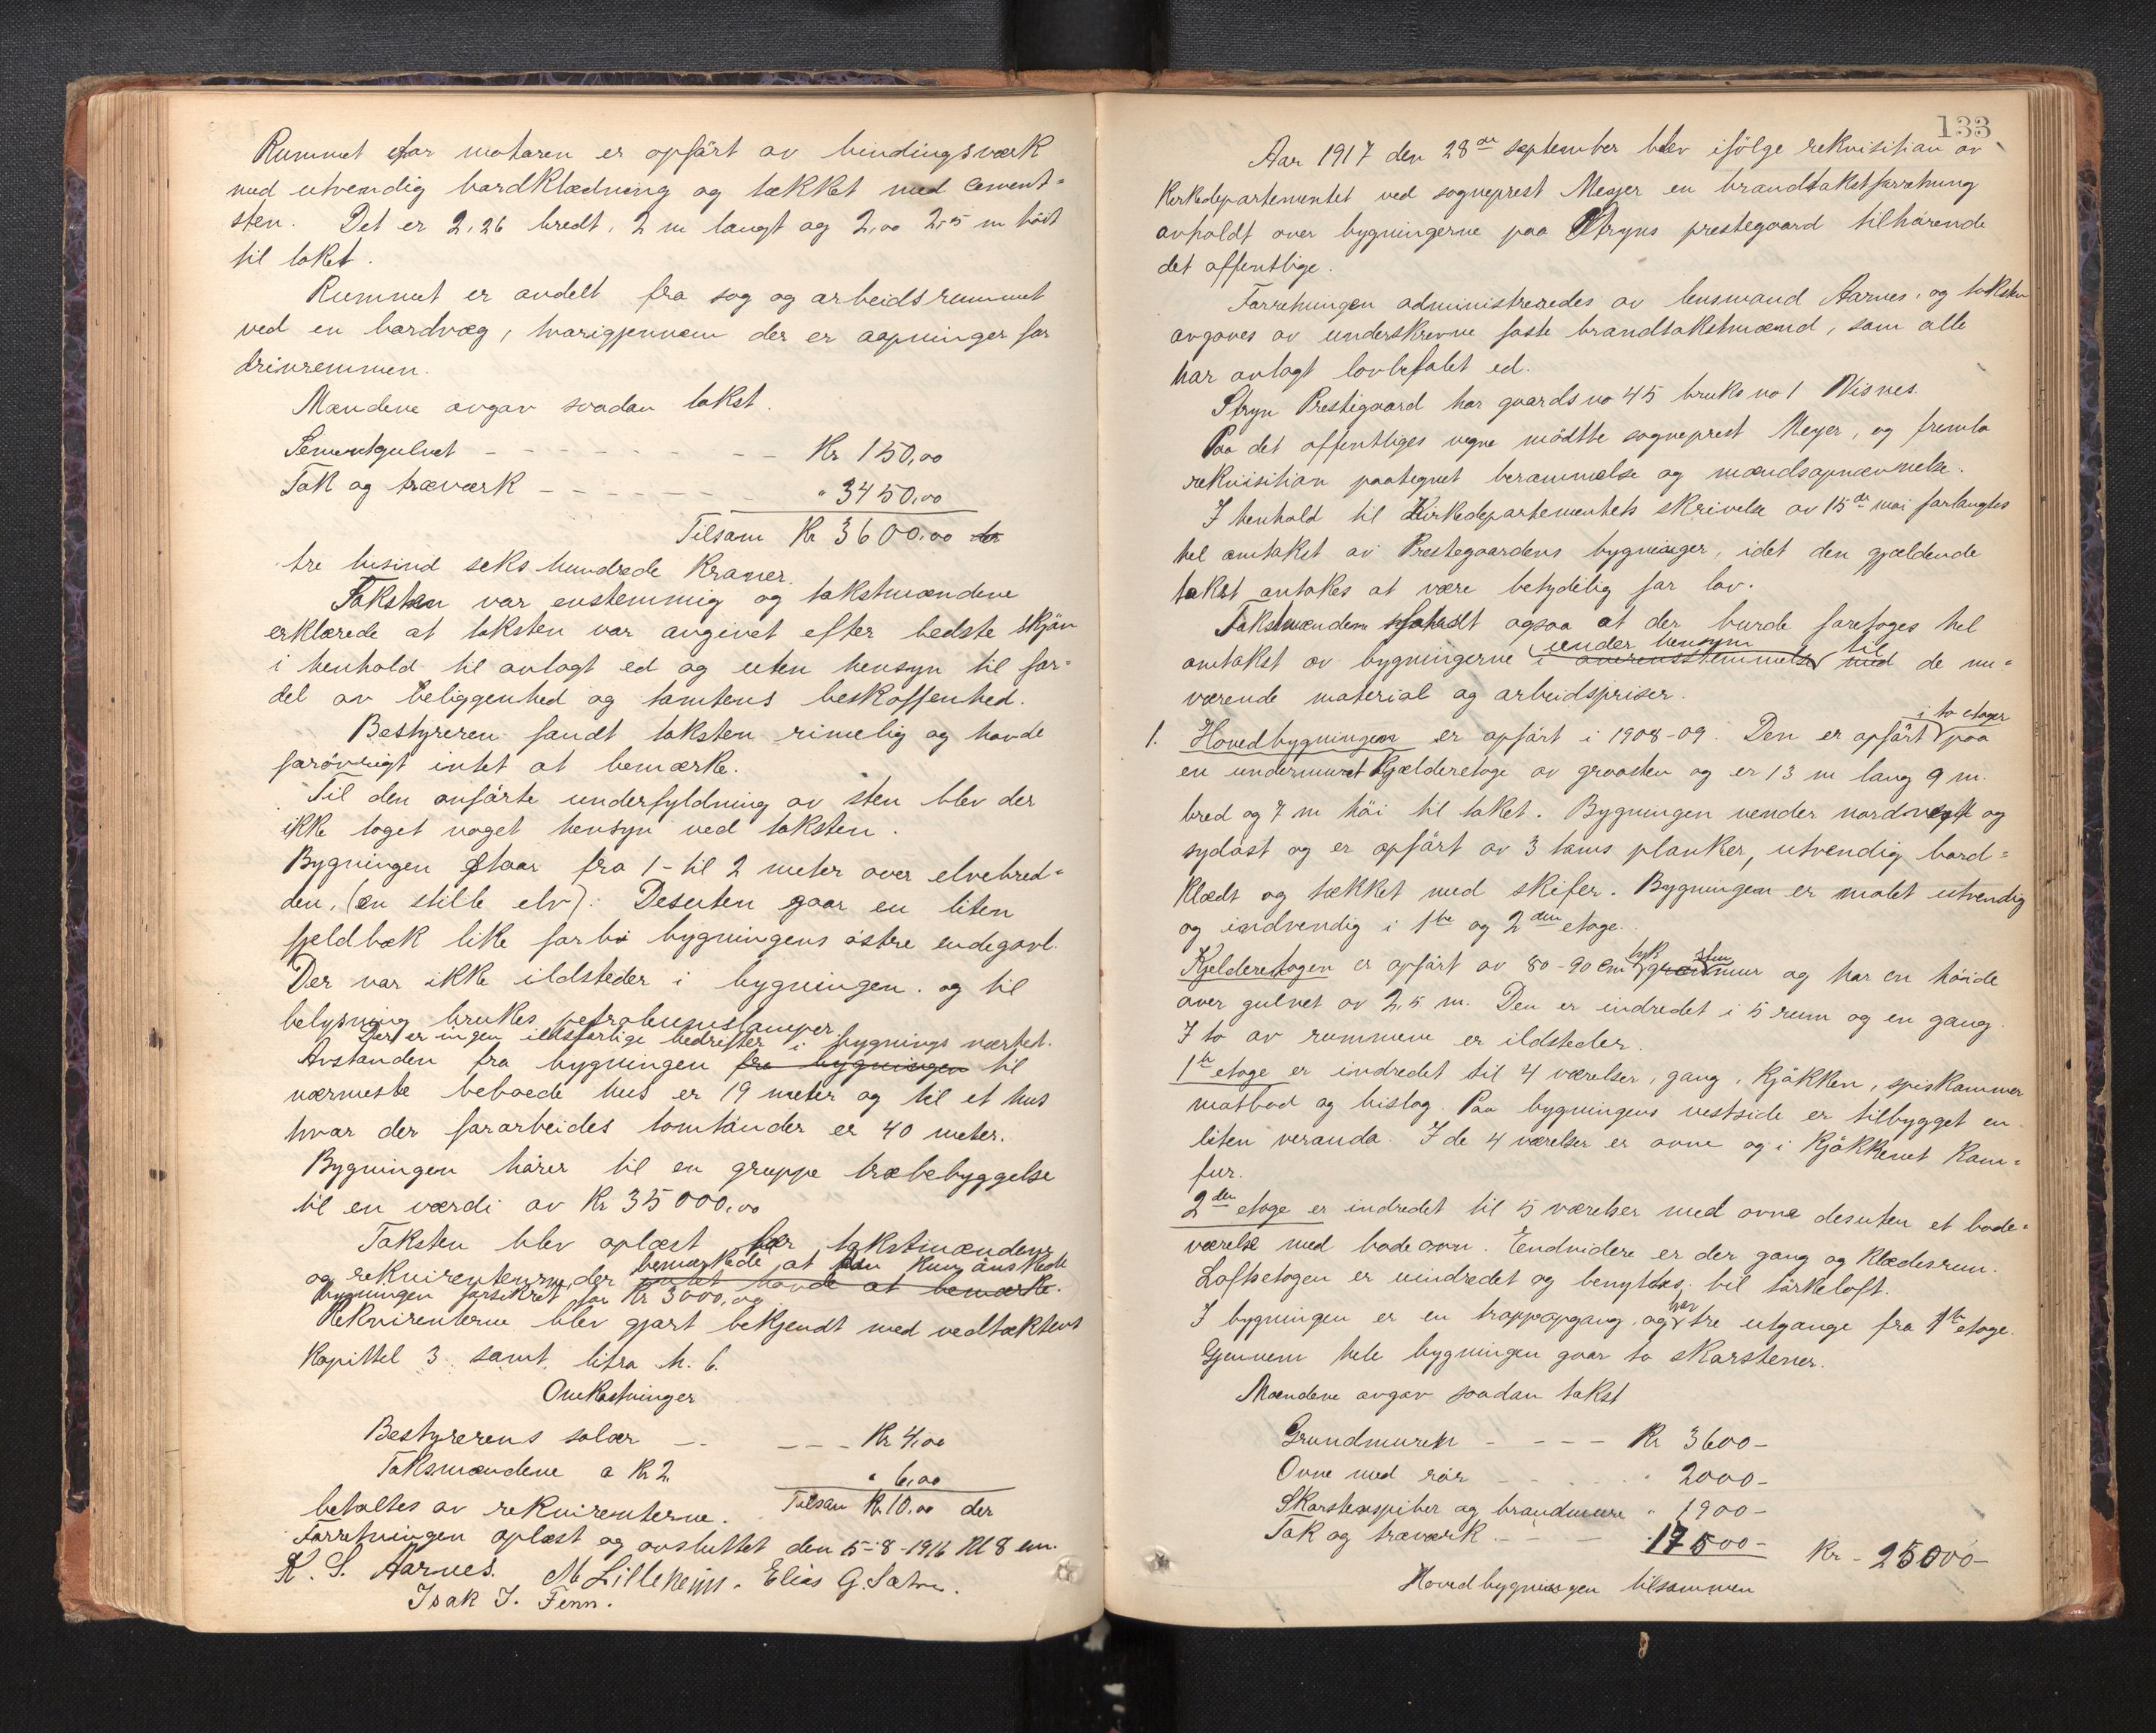 Rummet for motoren er opført av bindingsverk
med utvendig bordklædning og tækket med cement-
sten. Det er 2,26 bredt, 2 m langt og 2,00 2,5 m høit
til taket.
Rummet er avdelt fra sag og arbeidsrummet
ved en bordvæg, hvorigjennem der er aapninger for
drivremmen.
Mændene avgav saadan takst.
Sementgulvet - - - - - - - - Kr 150,00
Tak og træværk - - - - - - - " 3450,00
Tilsam Kr 3600,00
tre tusind seks hundrede Kroner.
Taksten var enstemmig og takstmændene
erklærede at taksten var avgivet efter bedste skjøn
i henhold til avlagt ed og uten hensyn til for-
del av beliggenhed og tomtens beskaffenhed.
Bestyreren fandt taksten rimelig og havde
forøvrigt intet at bemærke.
Til den anførte underfyldning av sten blev der
ikke taget noget hensyn ved taksten.
Bygningen staar fra 1- til 2 meter over elvebred-
den, (en stille elv). Desuten gaar en liten
fjeldbæk like forbi bygningens østre endegavl.
Der var ikke ildsteder i bygningen. og til
belysning brukes petroleumslamper.
Der er ingen ildsfarlige bedrifter i bygnings nærhet.
Avstanden fra bygningen fra bygningen til
nærmeste beboede hus er 19 meter og til et hus
hvor der forarbeides tomtønder er 40 meter.
Bygningen hører til en gruppe træbebyggelse
til en værdi av Kr 35000,00
Taksten blev oplæst for takstmændene
og rekvirenterne, der bemærkede at han kun ønskede
intet havde at bemærke.
bygningen forsikret for Kr 3000,00
Rekvirenterne blev gjort bekjendt med vedtæktens
Kapittel 3 samt litra h. 6.
Omkostninger
Bestyrerens salær - - - - - Kr 4,00
Taksmændene a Kr 2. " 6,00
betaltes av rekvirenterne. Tilsam Kr 10,00 der
Forretningen oplæst og avsluttet den 5-8-1916 Kl 8 em.
K. S. Aarnes. M Lilleheim. Elias G. Sætre.
Isak J. Fenn.
133
Aar 1917 den 28de september blev ifølge rekvisition av
Kirkedepartementet ved sogneprest Meyer en brandtakstforretning
avholdt over bygningerne paa Stryns prestegaard tilhørende
det offentlige.
Forretningen administreredes av lensmand Aarnes, og taksten
avgaves av underskrevne faste brandtakstmænd, som alle
har avlagt lovbefalet ed.
Stryn Prestegaard har gaards no 45 bruks no 1 Visnes.
Paa det offentliges vegne mødtte sogneprest Meyer, og fremla
rekvisition paategnet berammelse og mændsopnævnelse.
I henhold til Kirkedepartementets skrivelse av 15de mai forlangtes
hel omtakst av Prestegaardens bygninger, idet den gjældende
takst antakes at være betydelig for lav.
Takstmændene fandt ogsaa at der burde foretoges hel
under hensyn til
omtakst av bygningerne i overensstemmelse med de nu-
værende material og arbeidspriser.
i to etager
1. Hovedbygningen er opført i 1908-09. Den er opført paa
en undermuret Kjælderetage av graasten og er 13 m lang 9 m.
bred og 7 m høi til taket. Bygningen vender nordvest og
sydøst og er opført av 3 toms planker, utvendig bord-
klædt og tækket med skifer. Bygningen er malet utvendig
og indvendig i 1ste og 2den etage.
tyk sten
Kjelderetagen er opført av 80-90 cm graa mur og har en høide
over gulvet av 2,5 m. Den er indredet i 5 rum og en gang.
I to av rummene er ildsteder.
1ste etage er indredet til 4 værelser, gang, Kjøkken, spiskammer
matbod og bislag. Paa bygningens vestside er tilbygget en
liten veranda. I de 4 værelser er ovne og i Kjøkkenet Kom-
fur.
2den etage er indredet til 5 værelser med ovne desuten et bade-
værelse med badeovn. Endvidere er der gang og Klædesrum.
Loftsetagen er uindredet og benyttes til tørkeloft.
har
I bygningen er en trappopgang og tre utgange fra 1ste etage.
Gjennem hele bygningen gaar to skorstener.
Mændene avgav saadan takst
Grundmuren - - - - Kr 3600-
Ovne med rør - - - " 2000-
Skorstenspiber og brandmure " 1900-
Tak og træværk - - - " 17500-
Kr - 25000-
Hovedbygningen tilsammen